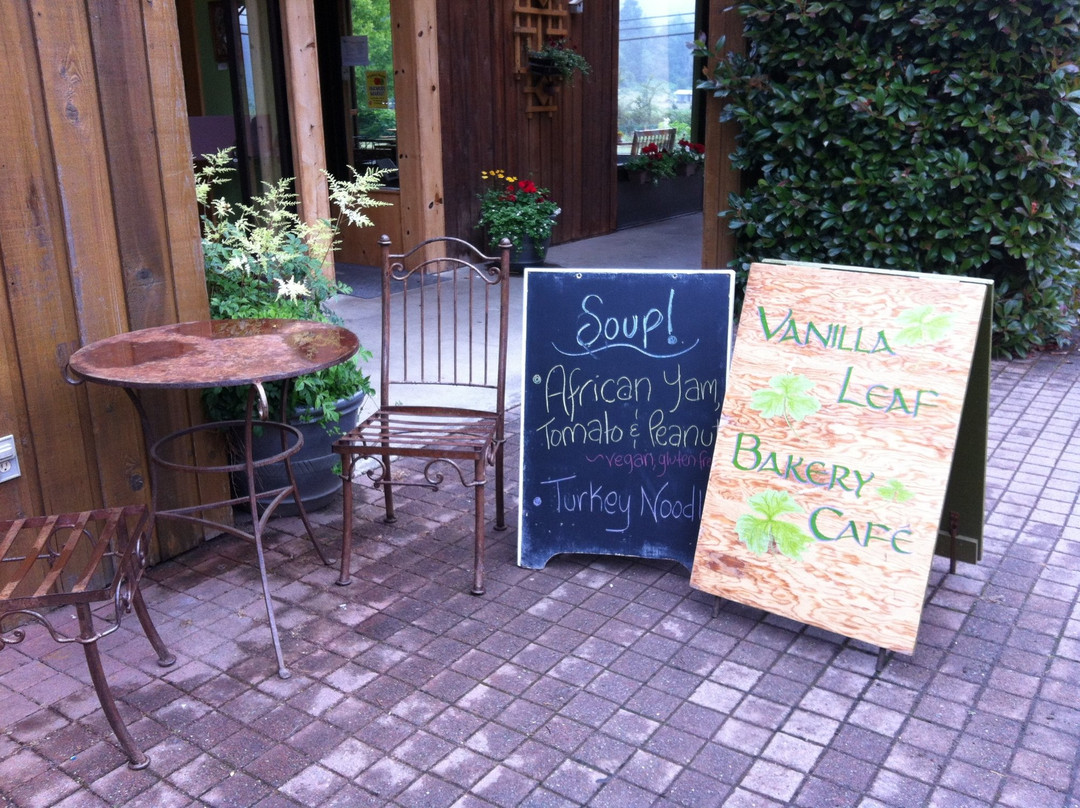 Soup!
African Yam,
Tomato & Peanut
~vegan, gluten
Turkey
Vanilla
Leaf
Bakery
Café